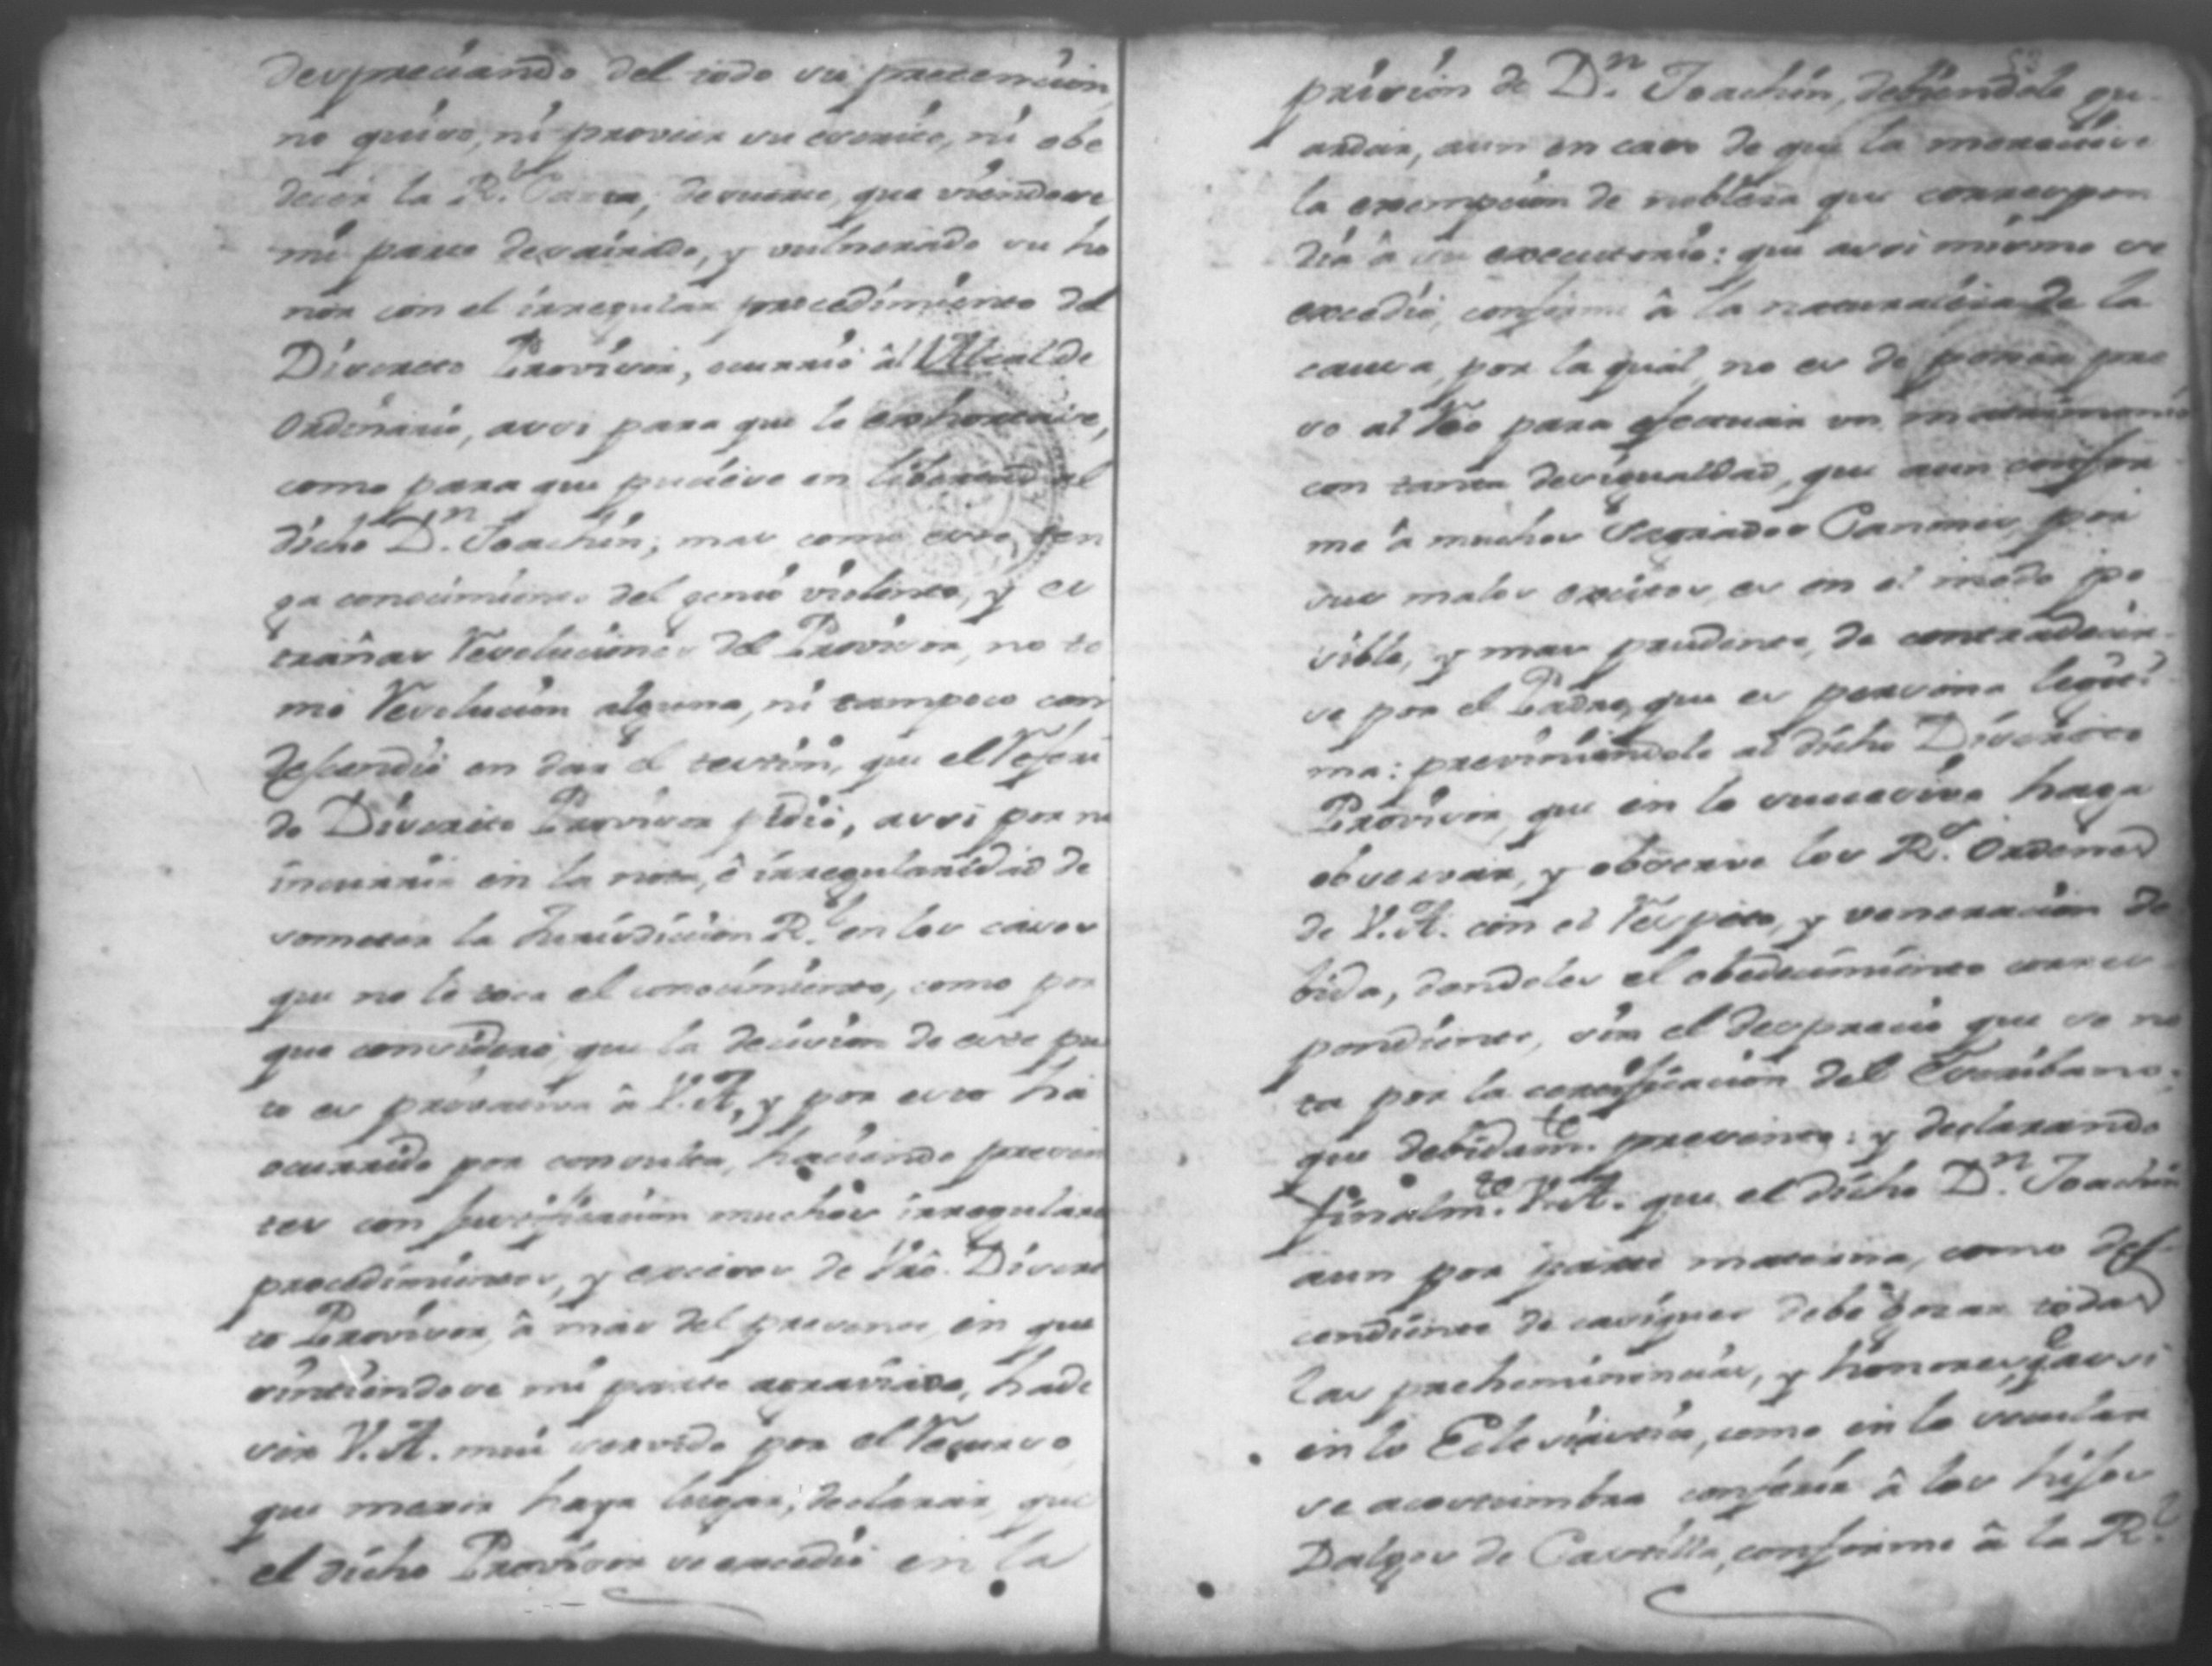 despreciando del todo su pretencion
no quiso, ni proveer su escrito, ni obe
decer la R.l Carta, desuerte, que viendose
mi parte desairado, y vulnerado su ho
nor con el irregular procedimiento del
Discreto Provisor, ocurrió âl Alcalde
Ordinario, assi para que lo exhortaise,
como para que pusiese en libertad al
dicho D.n Joachin; mas como este ten
ga conocimiento del genio violento, y es
trañas Resoluciones del Provisor, no to
mó Resolucion alguna, ni tampoco con
desendió en dar el testim.o que el Referi
do Discreto Provisor pidió, assi por no
incurrir en la nota, ô irregularidad de
someter la Jurisdiccion R.l en los casos
que no le toca el conocimiento, como por
que consideró que la decision de este pu
to es privativa â V.A., y por esto há
ocurrido por consulta, haciendo presen
tes con justificacion muchos irregulares
procedimientos, y excesos de Vrô. Discre
to Provisor, â mas del presente, en que
sintiendose mi parte agraviado, há de
ser V.A. mui servido por el Recurso
que mexor haya lugar, declarar, que
el dicho Provisor se excedió en la
prision de D.n Joachin, debiendole gu
ardar, aun en caso de que la mereciese
la exempcion de nobleza que correspon
dia â su executoria: que assi mismo se
excedió, conforme â la naturaleza de la
causa, por la qual no es de poner pre
so al Reo para efectuar un matrimonio
con tanta desigualdad, que aun confor
me â muchos Sagrados Canones, por
sus malos exitos, es en el modo po
sible, y mas prudente, de contradecir
se por el Padre, que es persona legiti
ma: previniendole al dicho Discreto
Provisor, que en lo succesivo haga
observar, y observe los R.s Ordenes
de V.A. con el Respeto, y veneracion de
bida, dandoles el obedecimiento corres
pondiente, sin el desprecio que se no
ta por la certificacion del Escribano,
que debidam.te presento: y declarando
finalm.te V.A. que el dicho D.n Joachin
aun por parte materna, como des
cendiente de casiques debe gozar todas
las preheminencias, y honores, q̃ assi
en lo Eclesiastico, como en lo secular
se acostumbra conferir â los hijos
Dalgos de Castilla, conforme â la R.l